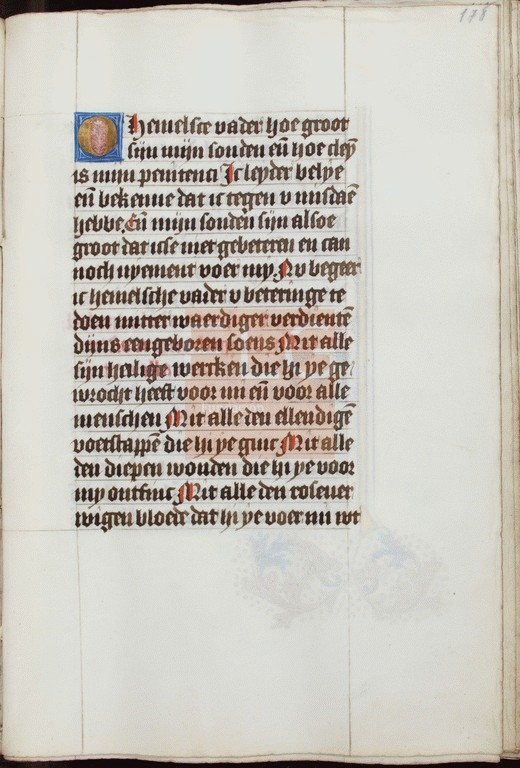 178
O Hemelsce vader hoe groot
sijn mijn sonden eñ hoe cleȳ
is mijn penitenci Ic leyder belye
eñ bekenne dat ic tegen v misdaē
hebbe Eñ mijn sonden sijn alsoe
groot dat icse niet gebeteren en can
noch nyement voer my Nv begeer
ic hemelsche vader v beteringe te
doen mitter waerdiger verdientē
dijns eengeboren soens Mit alle
sijn heilige wercken die hi ye ge
wrocht heeft voor mi eñ voor alle
menschen Mit alle den ellendigē
voetstappē die hi ye ginc Mit alle
den diepen wonden die hi ye voor
my ontfinc Mit alle den roseuer
wigen bloede dat hi ye voer mi wt